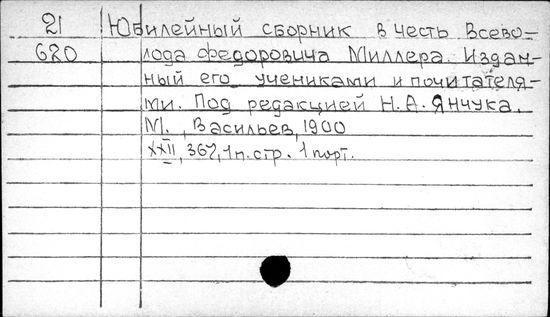 21 Юбилейный сборник в честь Всево-
620 лода Федоровича Миллера. Издан-
ный его учениками и почитателя-
ми. Под редакцией Н.А. Янчука.
М., Васильев, 1900
XXII, 367, 1 п. стр. 1 порт.